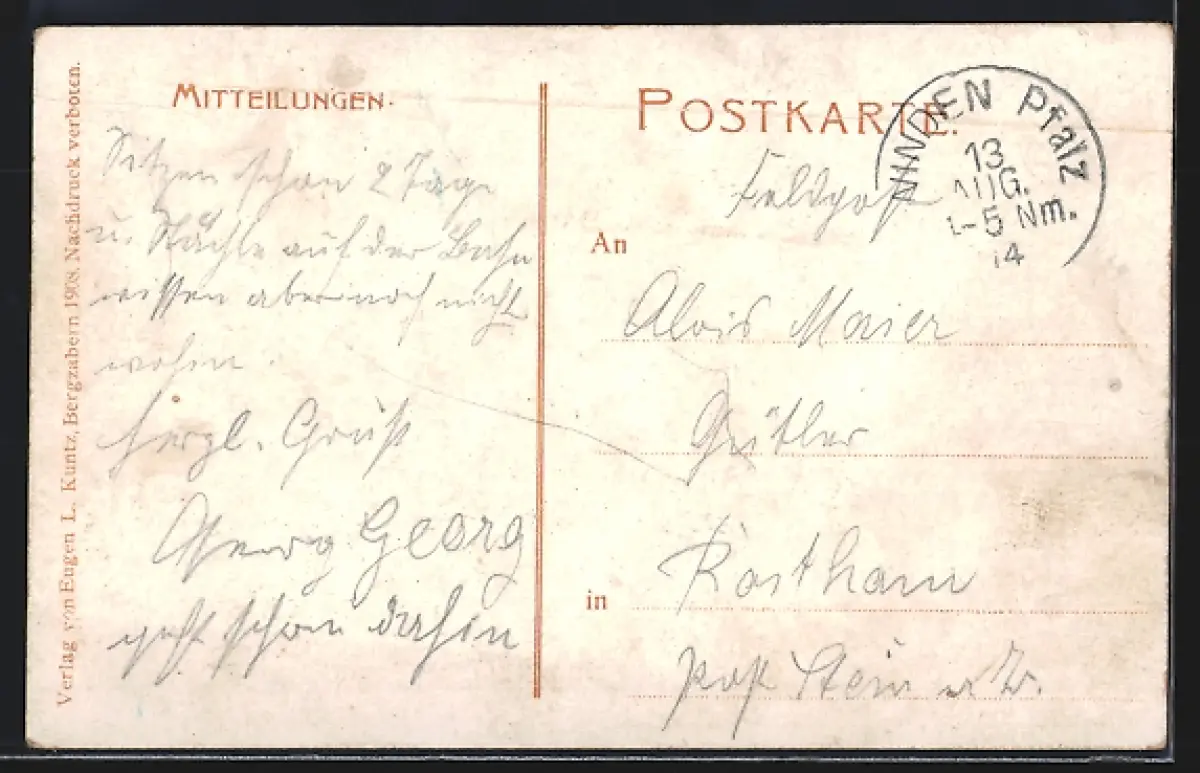 Verlag von Eugen L. Kuntz, Bergzabern 1908. Nachdruck verboten.
MITTEILUNGEN.
Sitzen schon 2 Tage
u. Nächte auf der Bahn
wissen aber noch nicht
wohin.
Herzl. Gruß
Georg Georg
geht schon dahin
POSTKARTE.
INDEN Pfalz
13
AUG.
-5 Nm.
14
Feldpost
An
Alois Maier
Gütler
in
Rostham
Post Stein a Tr.